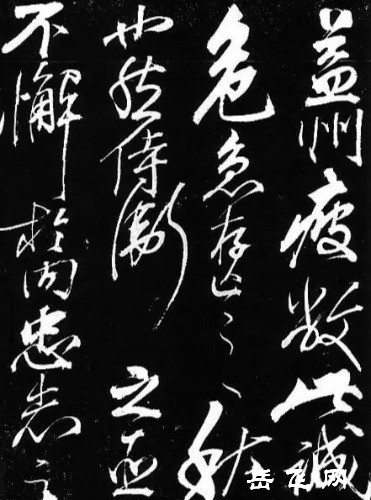 益州疲敝此誠
危急存亡之秋
也然侍衛之臣
不懈於内忠志之
岳飞网